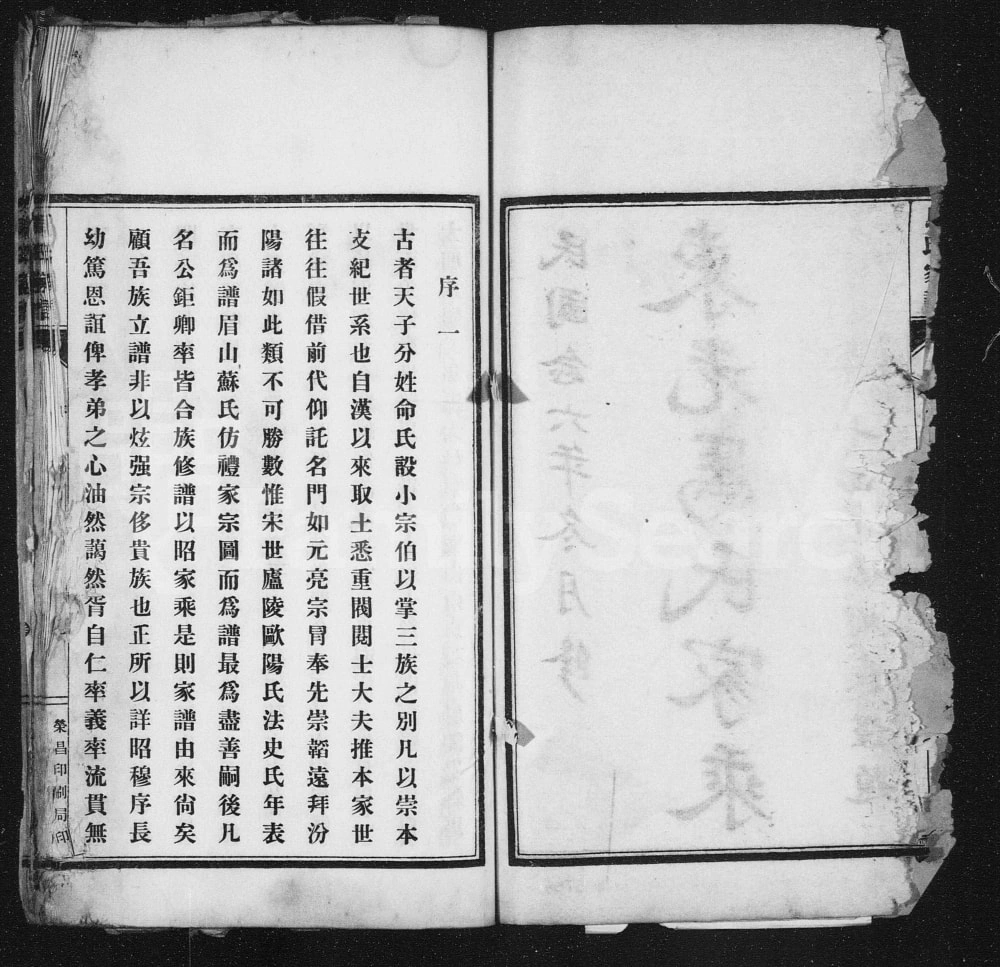 東光馬氏家乘
民國念六年冬月修
序一
古者天子分姓命氏設小宗伯以掌三族之別凡以崇本
支紀世系也自漢以來取士悉重閥閱士大夫推本家世
往往假借前代仰託名門如元亮宗冒奉先崇韜遠拜汾
陽諸如此類不可勝數惟宋世廬陵歐陽氏法史氏年表
而爲譜眉山蘇氏仿禮家宗圖而爲譜最爲盡善嗣後凡
名公鉅卿率皆合族修譜以昭家乘是則家譜由來尙矣
顧吾族立譜非以炫强宗侈貴族也正所以詳昭穆序長
幼篤恩誼俾孝弟之心油然藹然胥自仁率義率流貫無
榮昌印刷局印